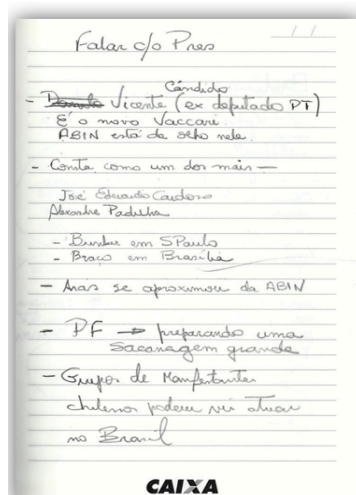 Falar c/o Pres
Cândido
- Vicente (ex deputado PT)
É o novo Vaccari.
ABIN está de olho nele.
- Consta como um dos mais —
José Eduardo Cardoso
Alexandre Padilha
- em SPaulo
- Braço em Brasília
- se aproximou da ABIN
- PF → preparando uma
sacanagem grande
- Grupos de Manifestantes
chilenos podem vir atuar
no Brasil
CAIXA